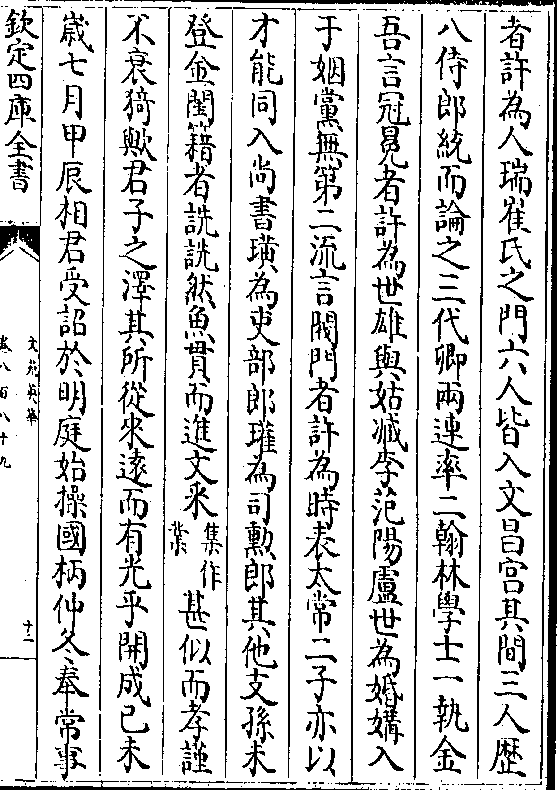 者許為人瑞崔氏之門六人皆入文昌宫其間三人歴
八侍郎統而論之三代卿兩連率二翰林學士一執金
吾言冠冕者許為世雄與姑臧李范陽盧世為婚媾入
于姻黨無第二流言閥門者許為時表太常二子亦以
才能同入尚書璜為吏部郎瓘為司勲郎其他支孫未
登金閨籍者詵詵然魚貫而進文采集作業甚似而孝謹
不衰猗歟君子之澤其所從來遠而有光乎開成己未
嵗七月甲辰相君受詔於明庭始操國柄仲冬奉常事
欽定四庫全書
文苑英華
卷八百八十九
十二